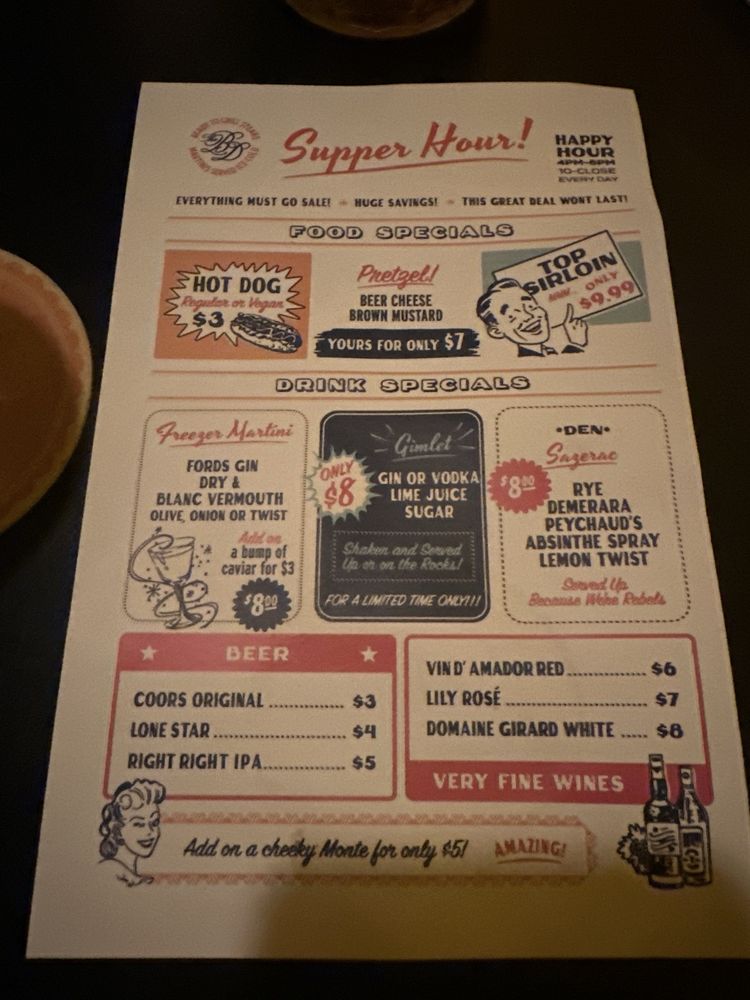 READY TO GRILL STEAKS
BD
MARTINIS SERVED ICE COLD
Supper Hour!
HAPPY
HOUR
4PM-6PM
10-CLOSE
EVERY DAY
EVERYTHING MUST GO SALE! HUGE SAVINGS! THIS GREAT DEAL WONT LAST!
FOOD SPECIALS
HOT DOG
Regular or Vegan
$3
Pretzel!
BEER CHEESE
BROWN MUSTARD
YOURS FOR ONLY $7
TOP
SIRLOIN
ONLY
$9.99
DRINK SPECIALS
Freezer Martini
FORDS GIN
DRY &
BLANC VERMOUTH
OLIVE, ONION OR TWIST
Add on
a bump of
caviar for $3
$8.00
Gimlet
ONLY
$8
GIN OR VODKA
LIME JUICE
SUGAR
Shaken and Served
Up or on the Rocks!
FOR A LIMITED TIME ONLY!!!
•DEN•
Sazerac
$8.00
RYE
DEMERARA
PEYCHAUD'S
ABSINTHE SPRAY
LEMON TWIST
Served Up
Because We're Rebels
BEER
COORS ORIGINAL ................ $3
LONE STAR ........................... $4
RIGHT RIGHT IPA................. $5
VIN D' AMADOR RED................ $6
LILY ROSÉ .............................. $7
DOMAINE GIRARD WHITE ..... $8
VERY FINE WINES
Add on a cheeky Monte for only $5! AMAZING!